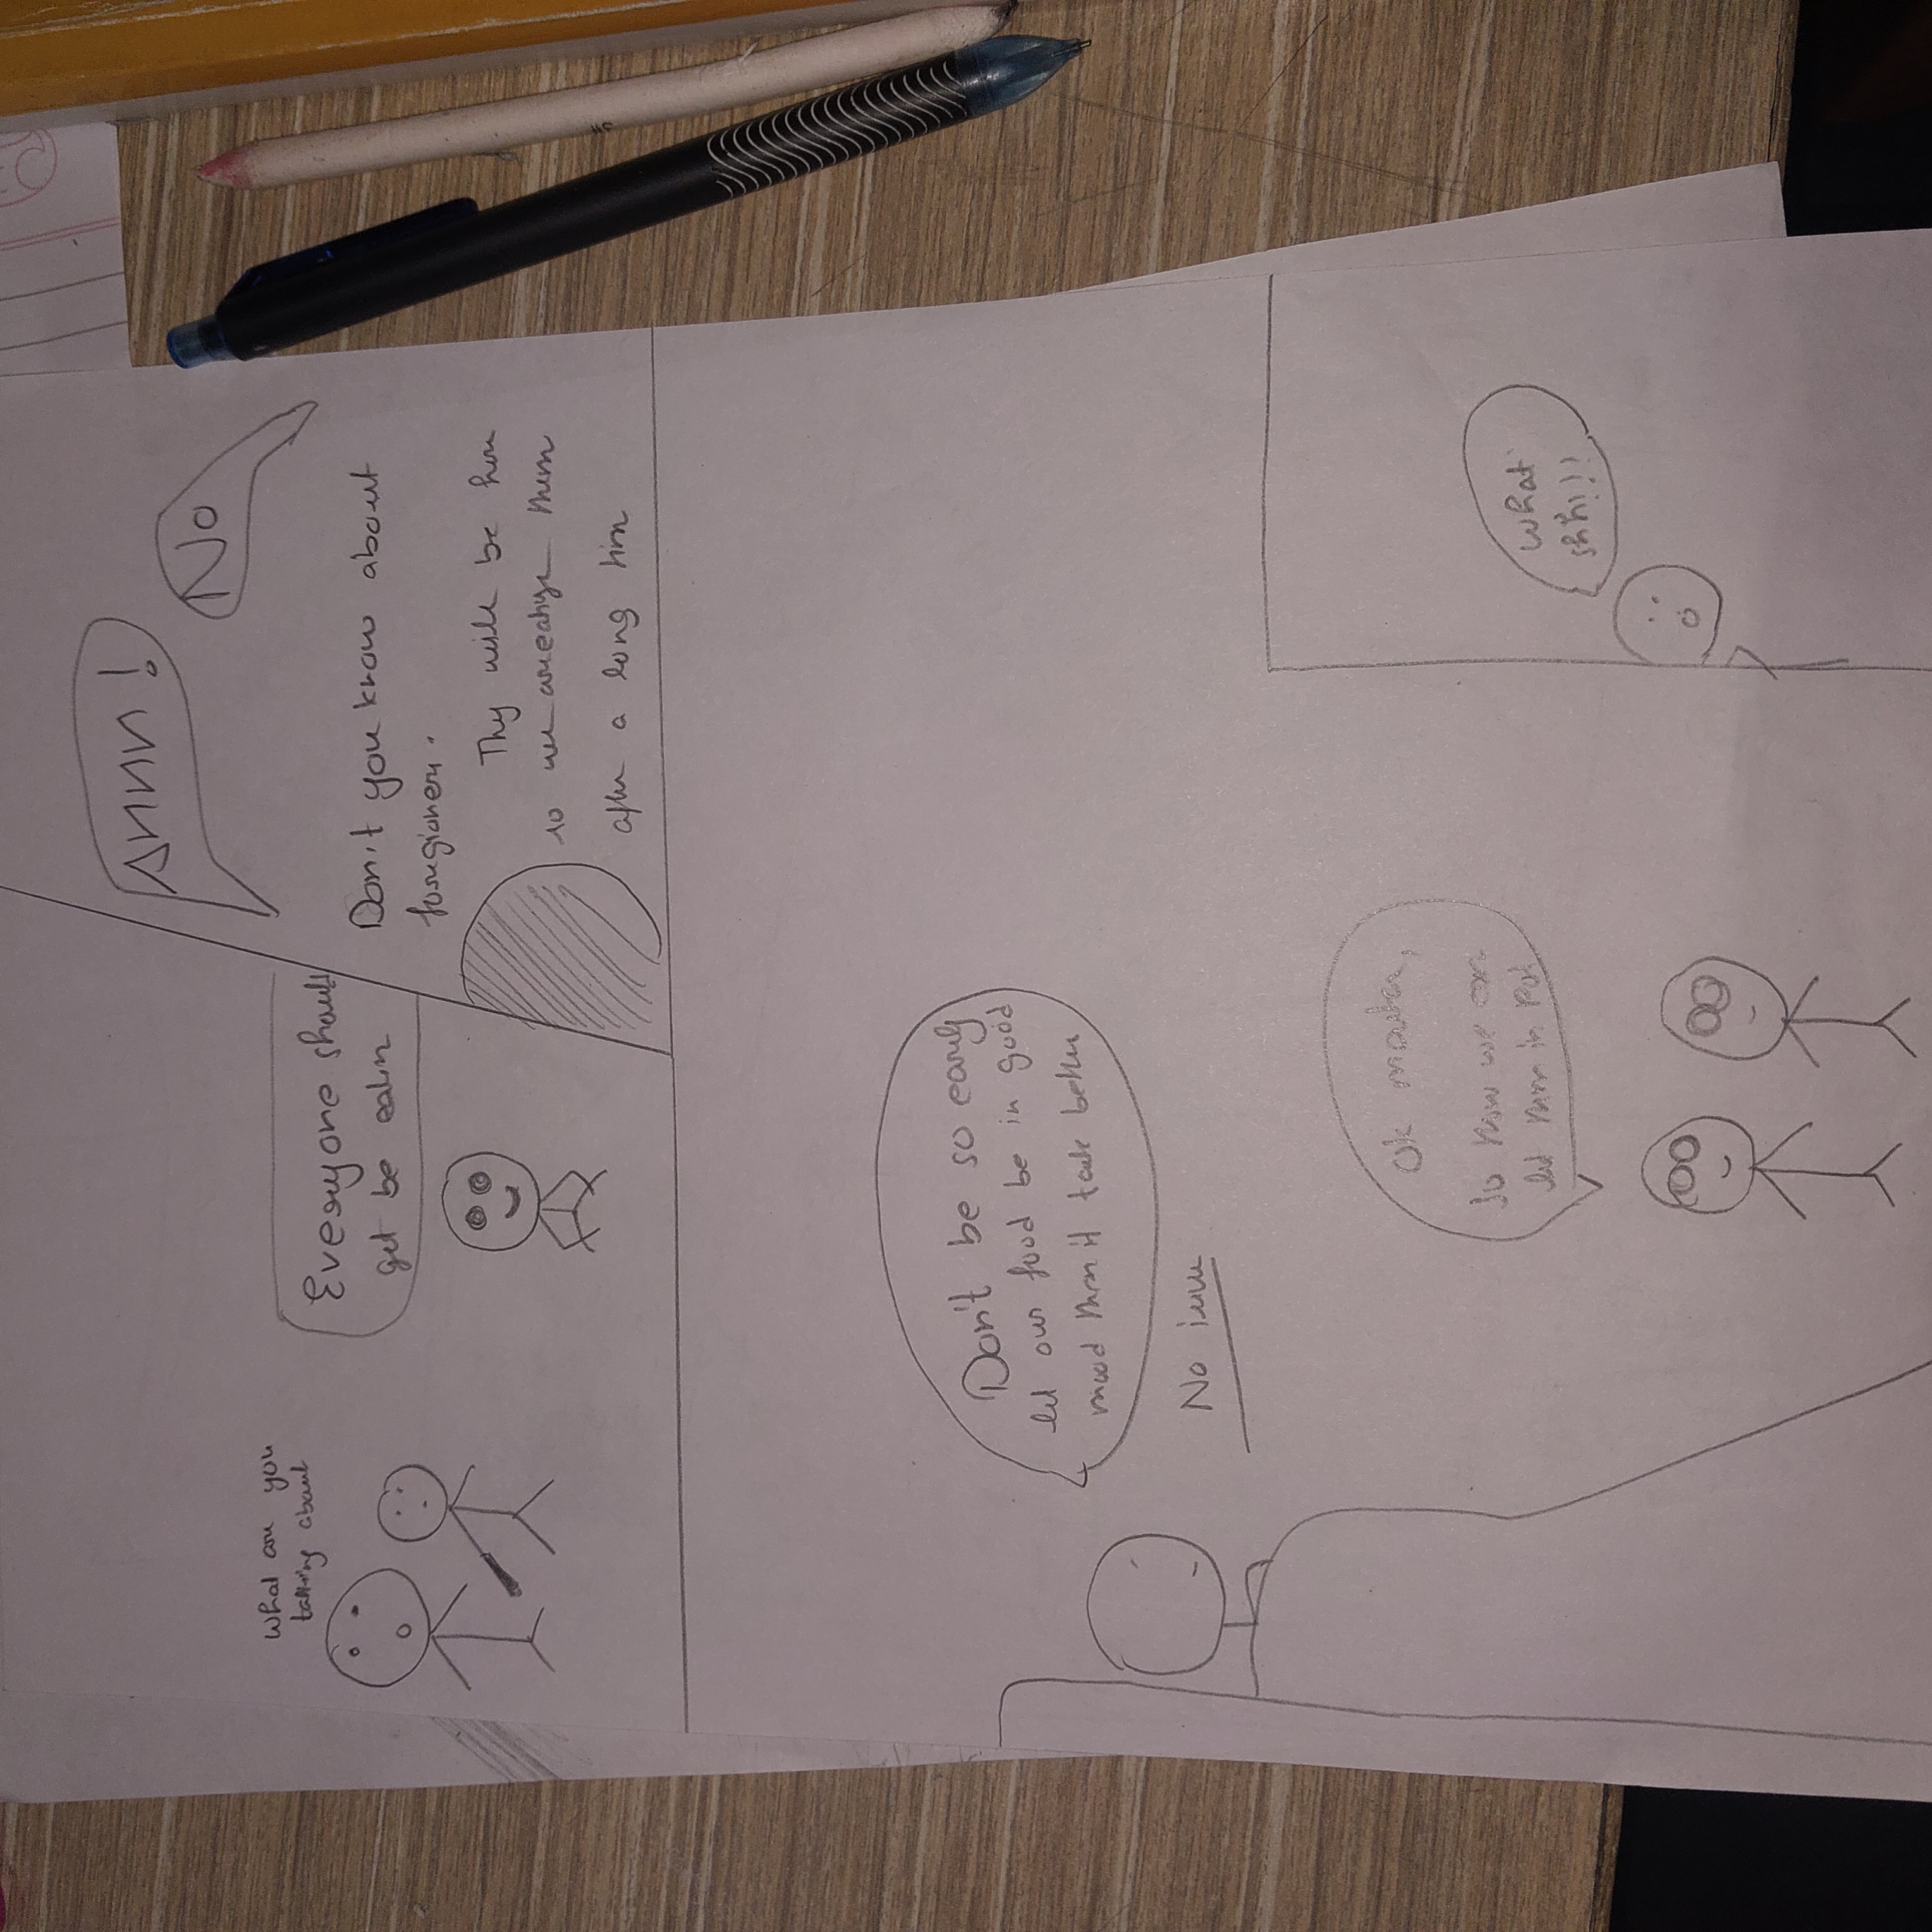 What are you
talking about
Everyone should
get be eatn
Ahhh!
No
Don't you know about
foregioners.
Thy will be here
so we areatige them
after a long time
Don't be so early
let our food be in good
mood then it taste better
No issue
Ok master,
So now we can
let them in Pot
What
shh!!!